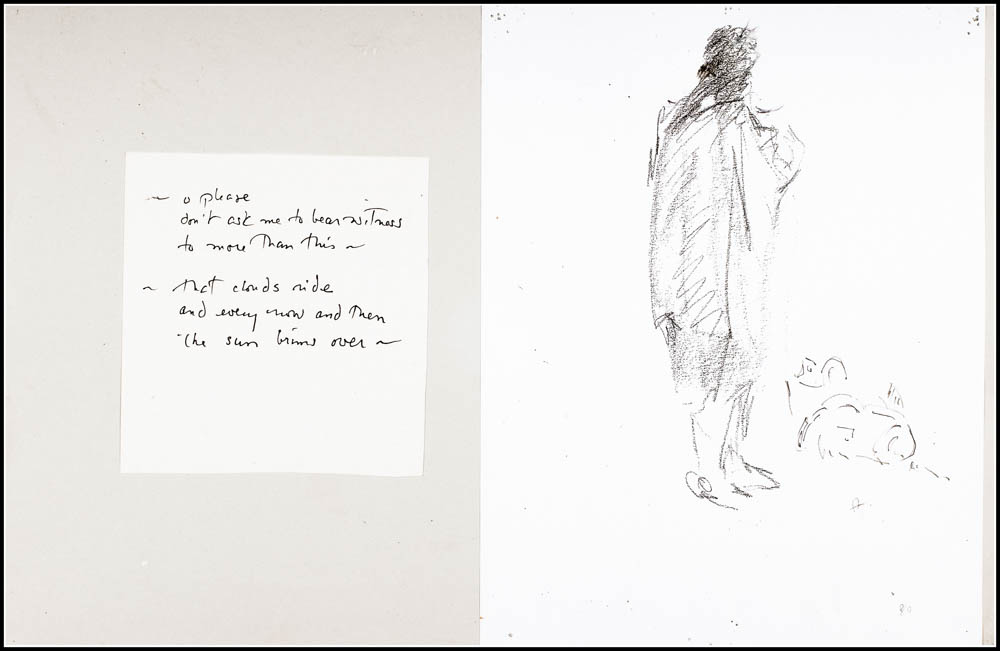 ~ o please
don't ask me to bear witness
to more than this ~
~ that clouds ride
and every now and then
the sun brims over ~